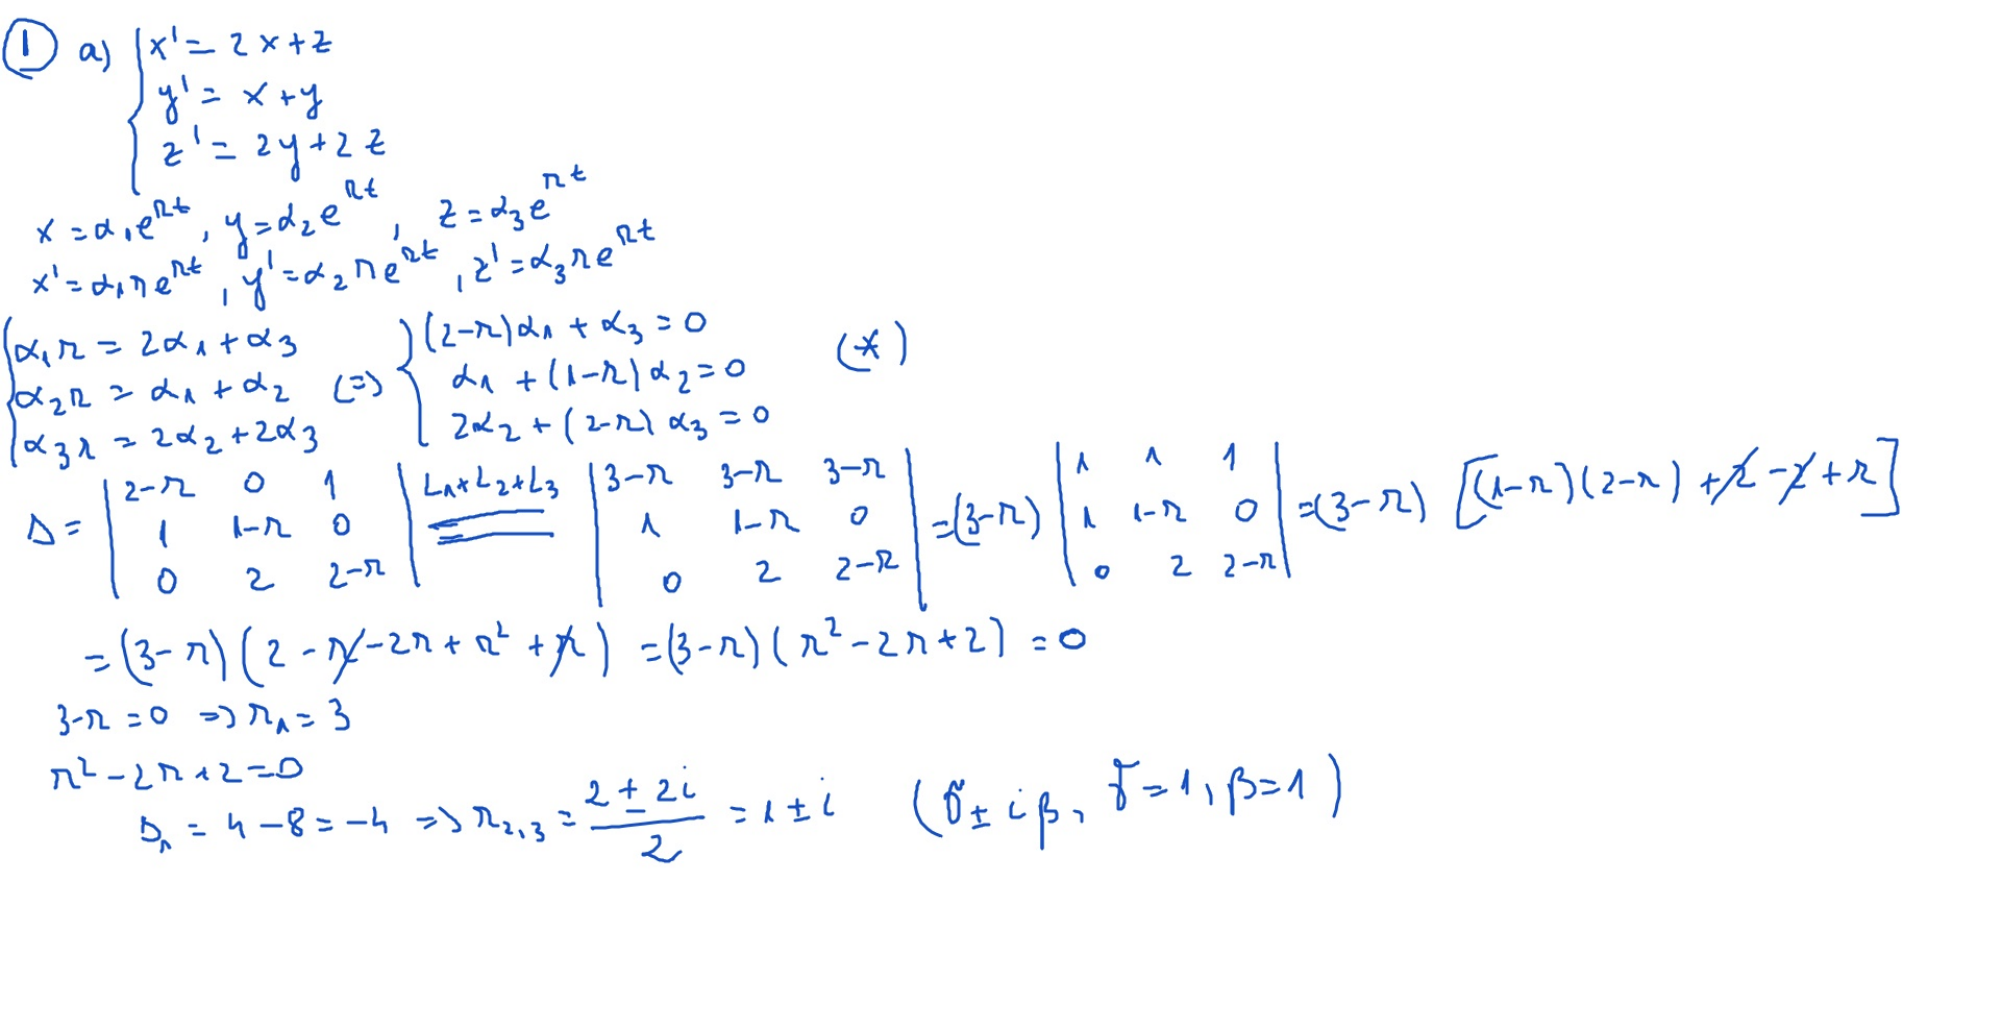 ① a) { x' = 2x+z
y' = x+y
z' = 2y+2z
x = α₁e^{rt}, y = α₂e^{rt}, z = α₃e^{rt}
x' = α₁re^{rt}, y' = α₂re^{rt}, z' = α₃re^{rt}
{ α₁r = 2α₁+α₃
α₂r = α₁+α₂
α₃r = 2α₂+2α₃
(=) { (2-r)α₁ + α₃ = 0
α₁ + (1-r)α₂ = 0
2α₂ + (2-r)α₃ = 0
(*)
Δ = | 2-r 0 1 ; 1 1-r 0 ; 0 2 2-r | L₁+L₂+L₃ = | 3-r 3-r 3-r ; 1 1-r 0 ; 0 2 2-r | = (3-r) | 1 1 1 ; 1 1-r 0 ; 0 2 2-r | = (3-r) [(1-r)(2-r) + 2 - 2 + r]
= (3-r)(2 - r - 2r + r² + r) = (3-r)(r² - 2r + 2) = 0
3-r = 0 => r₁ = 3
r² - 2r + 2 = 0
Δ₁ = 4 - 8 = -4 => r₂,₃ = (2 ± 2i)/2 = 1 ± i (γ ± iβ, γ = 1, β = 1)